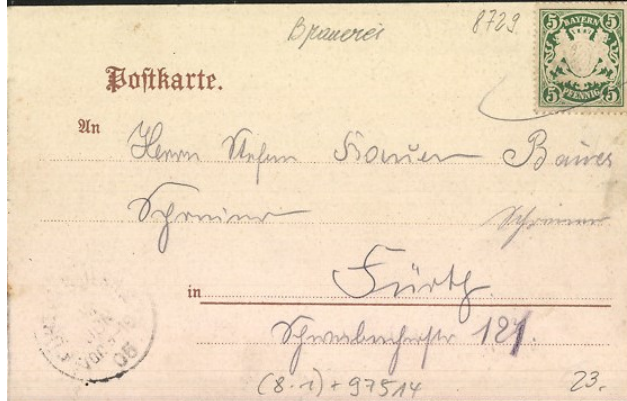 Brauerei 8729
5 BAYERN 5
5 PFENNIG 5
Postkarte.
An Herrn Stefan Bauer
Schreiner Schreiner
in Fürth
Schwabacherstr 121
(8·1)+97514 23.